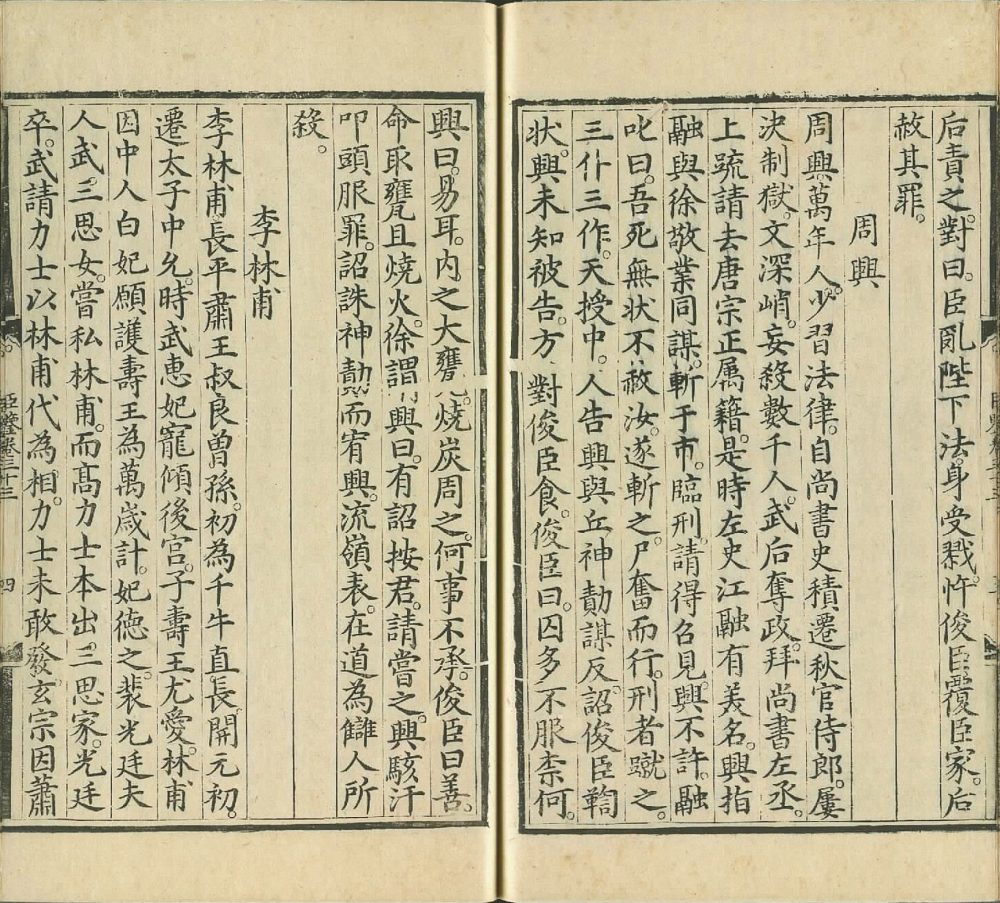 后責之。對曰。臣亂陛下法。身受戮。忤俊臣。覆臣家。后
赦其罪。
周興
周興。萬年人。少習法律。自尚書史積遷秋官侍郎。屢
決制獄。文深峭。妄殺數千人。武后奪政。拜尚書左丞。
上䟽請去唐宗正属籍。是時左史江融有美名。興指
融與徐敬業同謀。斬于市。臨刑。請得召見。興不許。融
叱曰。吾死無狀。不赦汝。遂斬之。尸奮而行。刑者蹴之。
三仆三作。天授中。人告興與丘神勣謀反。詔俊臣鞫
狀。興未知被告。方對俊臣食。俊臣曰。囚多不服柰何。
興曰。易耳。内之大甕。燒炭周之。何事不承。俊臣曰善。
命取甕且燒火。徐謂興曰。有詔按君。請嘗之。興駭汗
叩頭服罪。詔誅神勣而宥興。流嶺表。在道為讎人所
殺。
李林甫
李林甫。長平肅王叔良曾孫。初為千牛直長。開元初。
遷太子中允。時武惠妃寵傾後宮。子壽王尤愛。林甫
因中人白妃。願護壽王為萬歲計。妃德之。裴光廷夫
人。武三思女。嘗私林甫。而髙力士本出三思家。光廷
卒。武請力士以林甫代為相。力士未敢發。玄宗因蕭
臣鑒卷三十三
四